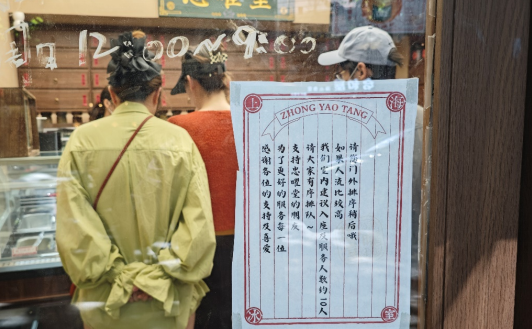 堂
12:00~9:00
上 海
ZHONG YAO TANG
请在门外排序稍后哦
如果人流比较高
我们室内建议入座/服务人数约10人
请大家有序排队~
支持忠曜堂的朋友
为了更好的服务每一位
感谢各位的支持及喜爱
冰